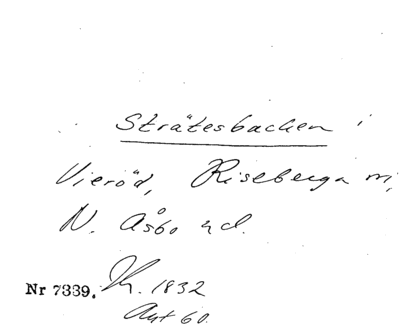 Strätesbacken i
Vieröd, Riseberga sn,
N. Åsbo hd.
Nr 7339. Kr. 1832
Akt 60.